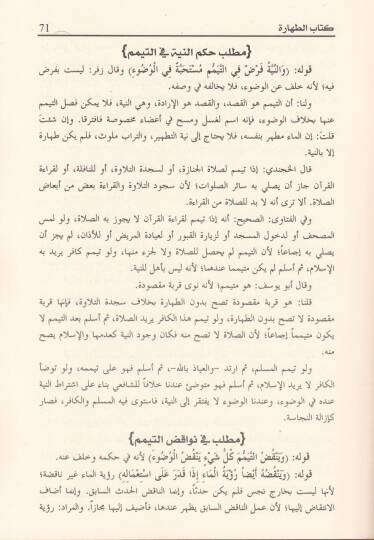 كتاب الطهارة
71
﴿مطلب حكم النية في التيمم﴾
قوله: (وَالنِّيَّةُ فَرْضٌ فِي التَّيَمُّمِ مُسْتَحَبَّةٌ فِي الْوُضُوءِ) وقال زفر: ليست بفرض
فيه؛ لأنه خلف عن الوضوء، فلا يخالفه في وصفه.
ولنا: أن التيمم هو القصد، والقصد هو الإرادة، وهي النية، فلا يمكن فصل التيمم
عنها بخلاف الوضوء، فإنه اسم لغسل ومسح في أعضاء مخصوصة فافترقا. وإن شئت
قلت: إن الماء مطهر بنفسه، فلا يحتاج إلى نية التطهير، والتراب ملوث، فلم يكن طهارة
إلا بالنية.
قال الخجندي: إذا تيمم لصلاة الجنازة، أو لسجدة التلاوة، أو للنافلة، أو لقراءة
القرآن جاز أن يصلي به سائر الصلوات؛ لأن سجود التلاوة والقراءة بعض من أبعاض
الصلاة. ألا ترى أنه لا بد للصلاة من القراءة.
وفي الفتاوى: الصحيح: أنه إذا تيمم لقراءة القرآن لا يجوز به الصلاة، ولو لمس
المصحف أو لدخول المسجد أو لزيارة القبور أو لعيادة المريض أو للأذان، لم يجز أن
يصلي به إجماعاً؛ لأن التيمم لم يحصل للصلاة ولا لجزء منها، ولو تيمم كافر يريد به
الإسلام، ثم أسلم لم يكن متيمما عندهما؛ لأنه ليس بأهل للنية.
وقال أبو يوسف: هو متيمم؛ لأنه نوى قربة مقصودة.
قلنا: هو قربة مقصودة تصح بدون الطهارة بخلاف سجدة التلاوة، فإنها قربة
مقصودة لا تصح بدون الطهارة، ولو تيمم هذا الكافر يريد الصلاة، ثم أسلم بعد التيمم لا
يكون متيمماً إجماعاً؛ لأن الصلاة لا تصح منه فكان وجود النية كعدمها والإسلام يصح
منه.
ولو تيمم المسلم، ثم ارتد -والعياذ بالله-، ثم أسلم فهو على تيممه، ولو توضأ
الكافر لا يريد الإسلام، ثم أسلم فهو متوضئ عندنا خلافاً للشافعي بناء على اشتراط النية
عنده في الوضوء، وعندنا الوضوء لا يفتقر إلى النية، فاستوى فيه المسلم والكافر، فصار
كإزالة النجاسة.
﴿مطلب في نواقض التيمم﴾
قوله: (وَيَنْقُضُ التَّيَمُّمَ كُلُّ شَيْءٍ يَنْقُضُ الْوُضُوءَ) لأنه في حكمه وخلف عنه.
قوله: (وَيَنْقُضُهُ أَيْضاً رُؤْيَةُ الْمَاءِ إِذَا قَدَرَ عَلَى اسْتِعْمَالِهِ) رؤية الماء غير ناقضة؛
لأنها ليست بخارج نجس فلم يكن حدثاً، وإنما الناقض الحدث السابق. وإنما أضاف
الانتقاض إليها؛ لأن عمل الناقض السابق يظهر عندها، فأضيف إليها مجازاً. والمراد: رؤية